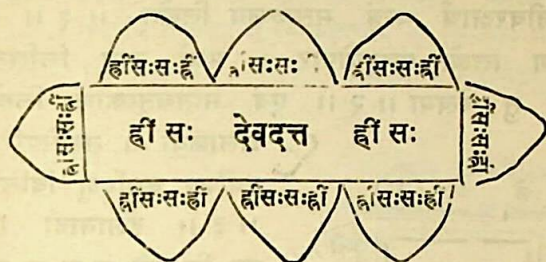 ह्रींसःसःह्रीं सःसः ह्रींसःसःह्रीं
ह्रींसःसःह्रीं ह्रीं सः देवदत्त ह्रीं सः ह्रींसःसःह्रीं
ह्रींसःसःह्रीं ह्रींसःसःह्रीं ह्रींसःसःह्रीं